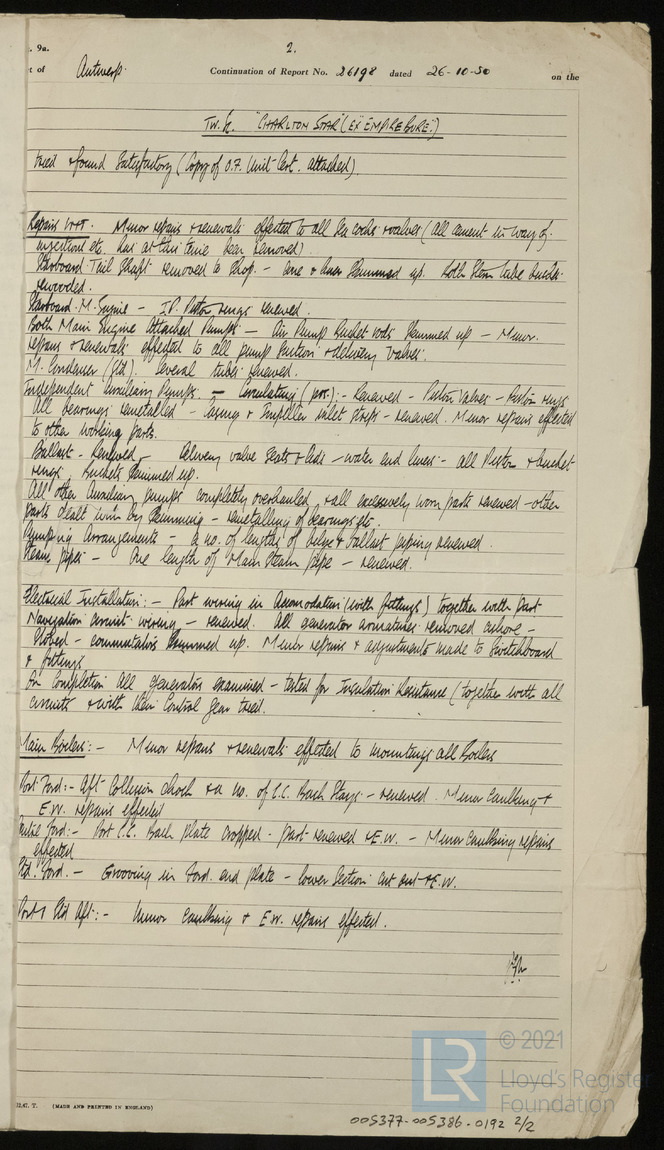 . 9a.
2.
t of Antwerp. Continuation of Report No. 26198 dated 26-10-50 on the
Tw. Sc. "CHARLTON STAR" (EX "EMPIRE BURE.")
tried & found Satisfactory (Copy of O.F. Unit Cert. attached).
Repairs W&T. Minor repairs & renewals effected to all Sea cocks & valves (all cement in way of
injections etc. has at this time been removed)
Starboard Tail Shaft removed to shop. - and liner skimmed up. Both Stern tube bushes
rewooded.
Starboard. M. Engine - I.P. Piston rings renewed.
Both Main Engine Attached Pumps: - Air Pump Bucket rods skimmed up - Minor.
repairs & renewals effected to all pump suction & delivery valves.
M. Condenser (Std). Several tubes renewed.
Independent Auxiliary Pumps. - Circulating (port):- Renewed - Piston Valves - Piston rings
All bearings remetalled - Casing & Impeller inlet strips - renewed. Minor repairs effected
to other working parts.
Ballast - Renewed - delivery valve Seats & - water end liners - all Piston & bucket
rings, buckets skimmed up.
All other Auxiliary pumps completely overhauled & all excessively worn parts renewed - other
parts dealt with by skimming - remetalling of bearings etc.
Pumping Arrangements - a no. of lengths of bilge & ballast piping renewed.
Steam pipes - One length of Main Steam pipe - renewed.
Electrical Installation: - Part wiring in Acomodation (with fittings) together with part
Navigation circuit wiring - renewed. All generator armatures removed ashore -
stoved - commutators skimmed up. Minor repairs & adjustments made to Switchboard
& fittings
On Completion all generators examined - tested for Insulation Resistance (together with all
circuits & with their Control Gear tried.
Main Boilers: - Minor repairs & renewals effected to mountings all Boilers
Port Ford:- Aft Collision chock & a no. of C.C. Back Stays - renewed. Minor Caulking &
E.W. repairs effected
Centre Ford:- Port C.C. Back plate cropped - part renewed & E.W. - Minor Caulking repairs
effected
Std. Ford. - Grooving in Ford. end plate - lower Section cut out & E.W.
Port & Std Aft: - Minor caulking & E.W. repairs effected.
12,47. T. (MADE AND PRINTED IN ENGLAND)
LR
© 2021
Lloyd's Register
Foundation
005377-005386-0192 2/2